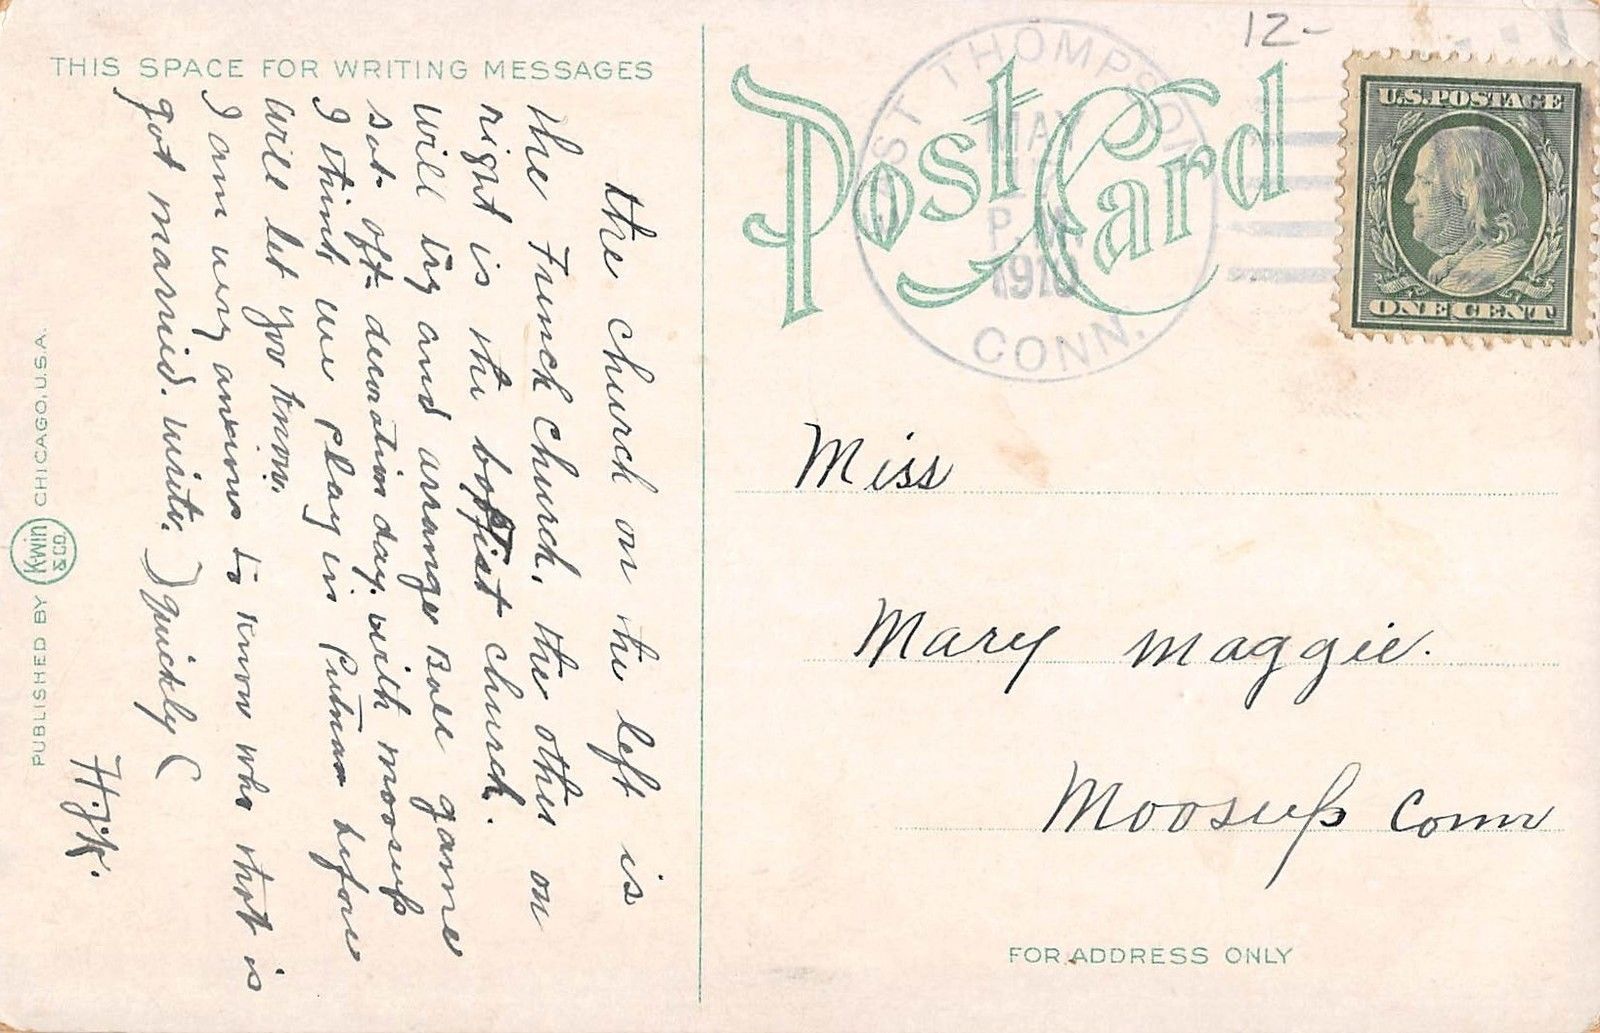 THIS SPACE FOR WRITING MESSAGES
the church on the left is
the French church. the other on
right is the baptist church.
will try and arrange Base game
sat. aft. decoration day. with moosup
I think we play in Putnam before
will let you know.
I am very anxious to know who that is
got married. write. ) quickly (
H.J.K.
PUBLISHED BY Kwin & CO. CHICAGO, U.S.A.
Post Card
12-
ST THOMPSON
MAY
P.M.
1910
CONN.
U.S. POSTAGE
ONE CENT
Miss
Mary Maggie.
Moosup Conn
FOR ADDRESS ONLY